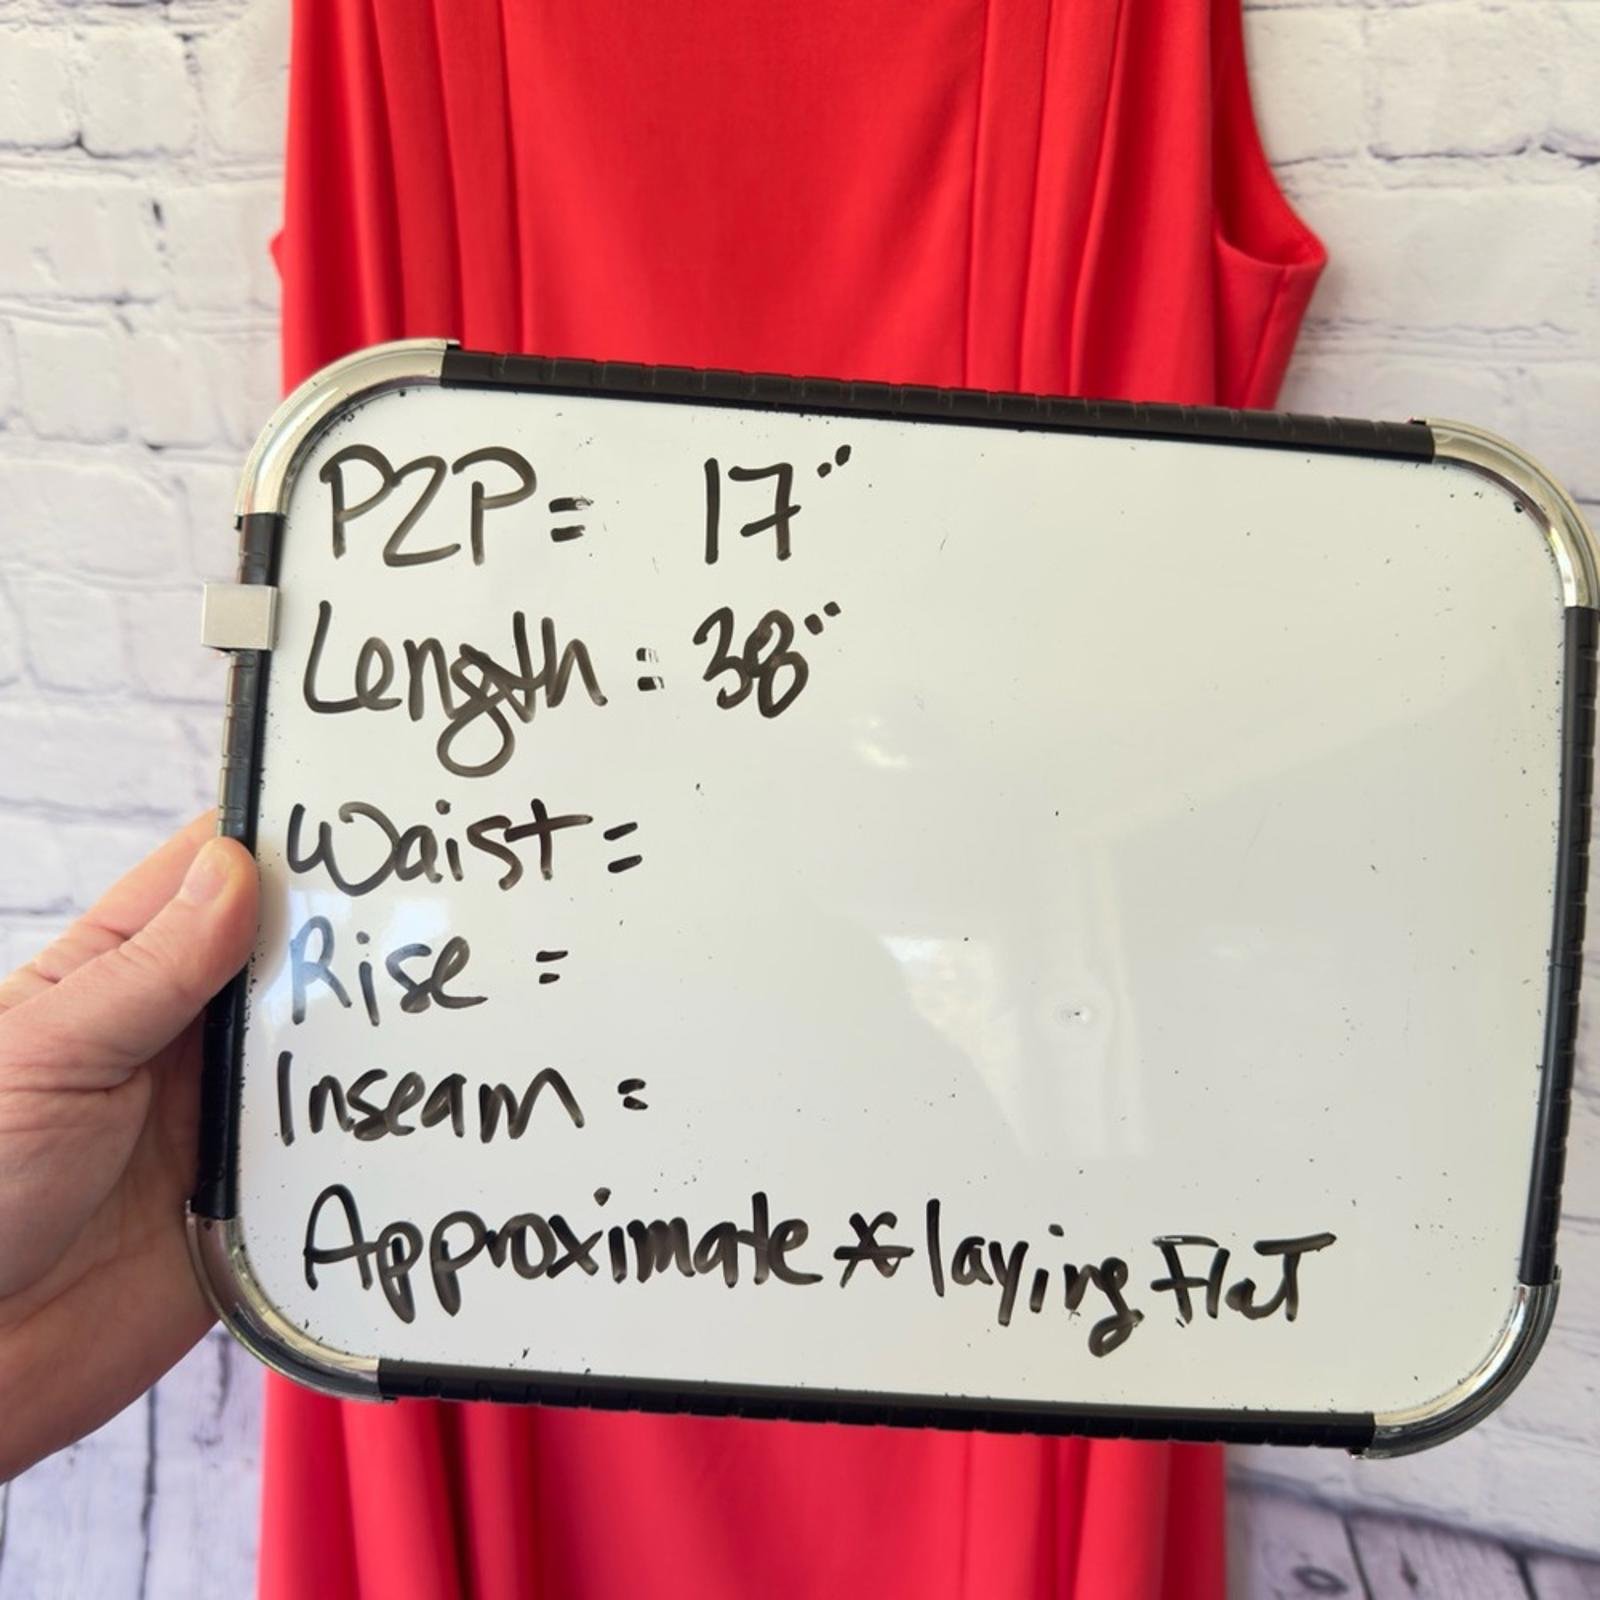 P2P = 17"
Length = 38"
Waist =
Rise =
Inseam =
Approximate * laying Flat